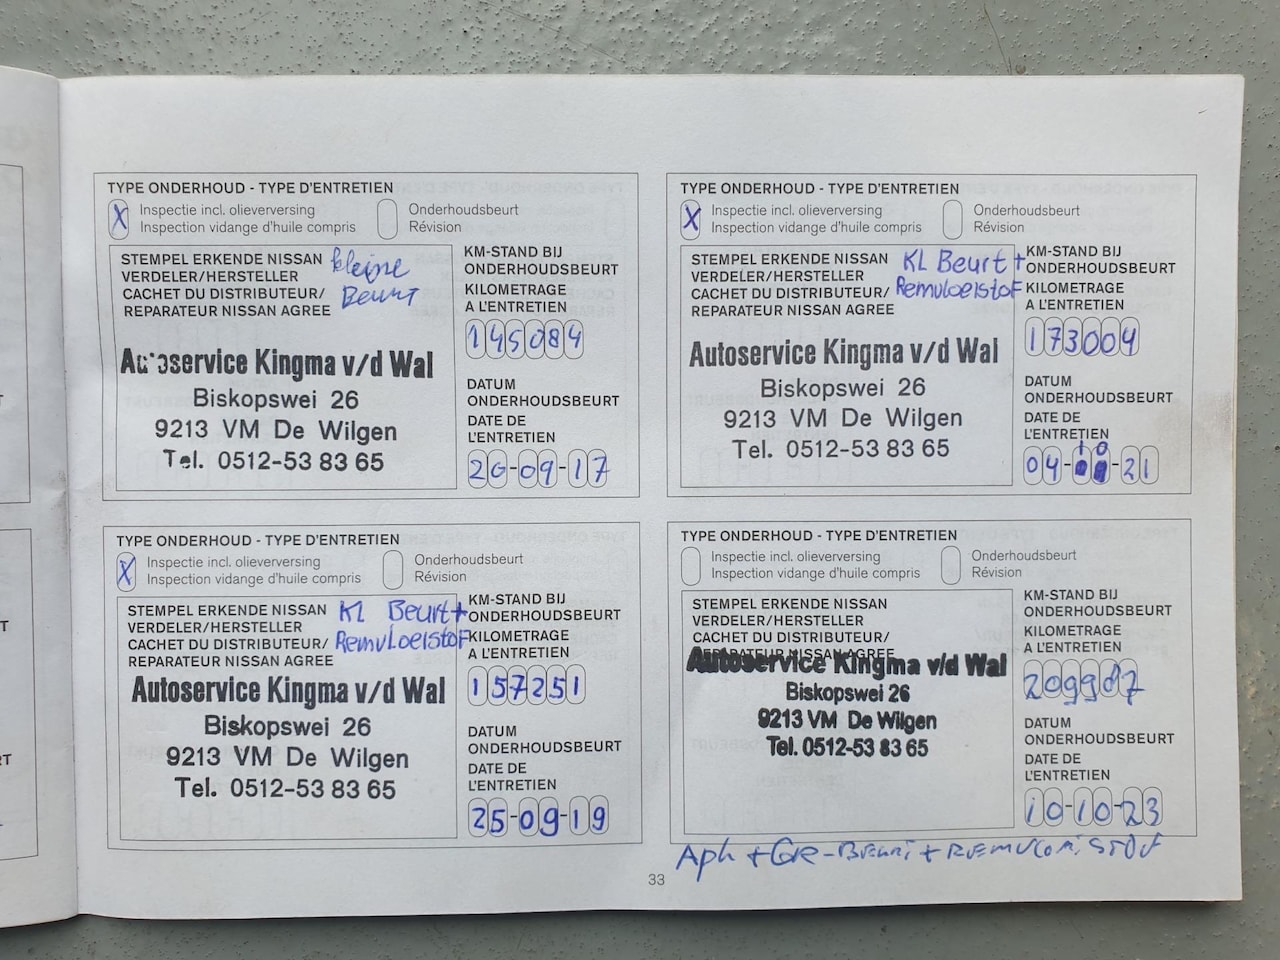 TYPE ONDERHOUD - TYPE D'ENTRETIEN
X Inspectie incl. olieverversing
Inspection vidange d'huile compris
Onderhoudsbeurt
Révision
STEMPEL ERKENDE NISSAN
VERDELER/HERSTELLER
CACHET DU DISTRIBUTEUR/
REPARATEUR NISSAN AGREE
kleine
Beurt
Autoservice Kingma v/d Wal
Biskopswei 26
9213 VM De Wilgen
Tel. 0512-53 83 65
KM-STAND BIJ
ONDERHOUDSBEURT
KILOMETRAGE
A L'ENTRETIEN
145084
DATUM
ONDERHOUDSBEURT
DATE DE
L'ENTRETIEN
20-09-17
TYPE ONDERHOUD - TYPE D'ENTRETIEN
X Inspectie incl. olieverversing
Inspection vidange d'huile compris
Onderhoudsbeurt
Révision
STEMPEL ERKENDE NISSAN
VERDELER/HERSTELLER
CACHET DU DISTRIBUTEUR/
REPARATEUR NISSAN AGREE
KL Beurt +
Remvloeistof
Autoservice Kingma v/d Wal
Biskopswei 26
9213 VM De Wilgen
Tel. 0512-53 83 65
KM-STAND BIJ
ONDERHOUDSBEURT
KILOMETRAGE
A L'ENTRETIEN
173004
DATUM
ONDERHOUDSBEURT
DATE DE
L'ENTRETIEN
04-10-21
TYPE ONDERHOUD - TYPE D'ENTRETIEN
X Inspectie incl. olieverversing
Inspection vidange d'huile compris
Onderhoudsbeurt
Révision
STEMPEL ERKENDE NISSAN
VERDELER/HERSTELLER
CACHET DU DISTRIBUTEUR/
REPARATEUR NISSAN AGREE
KL Beurt +
Remvloeistof
Autoservice Kingma v/d Wal
Biskopswei 26
9213 VM De Wilgen
Tel. 0512-53 83 65
KM-STAND BIJ
ONDERHOUDSBEURT
KILOMETRAGE
A L'ENTRETIEN
157251
DATUM
ONDERHOUDSBEURT
DATE DE
L'ENTRETIEN
25-09-19
TYPE ONDERHOUD - TYPE D'ENTRETIEN
Inspectie incl. olieverversing
Inspection vidange d'huile compris
Onderhoudsbeurt
Révision
STEMPEL ERKENDE NISSAN
VERDELER/HERSTELLER
CACHET DU DISTRIBUTEUR/
REPARATEUR NISSAN AGREE
Autoservice Kingma v/d Wal
Biskopswei 26
9213 VM De Wilgen
Tel. 0512-53 83 65
KM-STAND BIJ
ONDERHOUDSBEURT
KILOMETRAGE
A L'ENTRETIEN
209987
DATUM
ONDERHOUDSBEURT
DATE DE
L'ENTRETIEN
10-10-23
Apk + GR-BEURT + REMVLOEISTOF
33